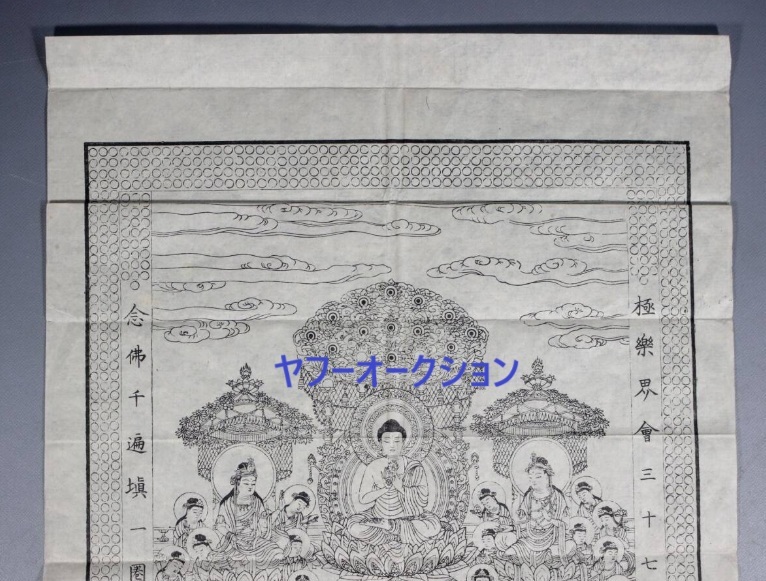 極樂界會三十七
念佛千遍塡一圈
ヤフーオークション